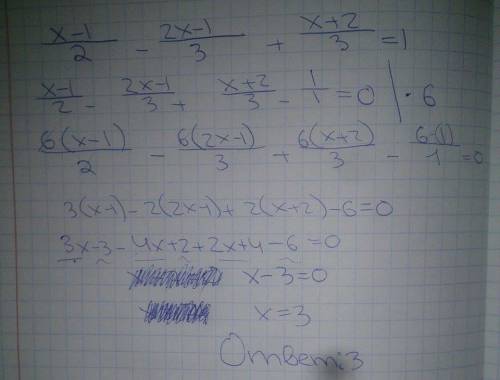 (x-1)/2 - (2x-1)/3 + (x+2)/3 = 1
(x-1)/2 - (2x-1)/3 + (x+2)/3 - 1/1 = 0 | · 6
6(x-1)/2 - 6(2x-1)/3 + 6(x+2)/3 - 6·(1)/1 = 0
3(x-1) - 2(2x-1) + 2(x+2) - 6 = 0
3x - 3 - 4x + 2 + 2x + 4 - 6 = 0
x - 3 = 0
x = 3
Ответ: 3